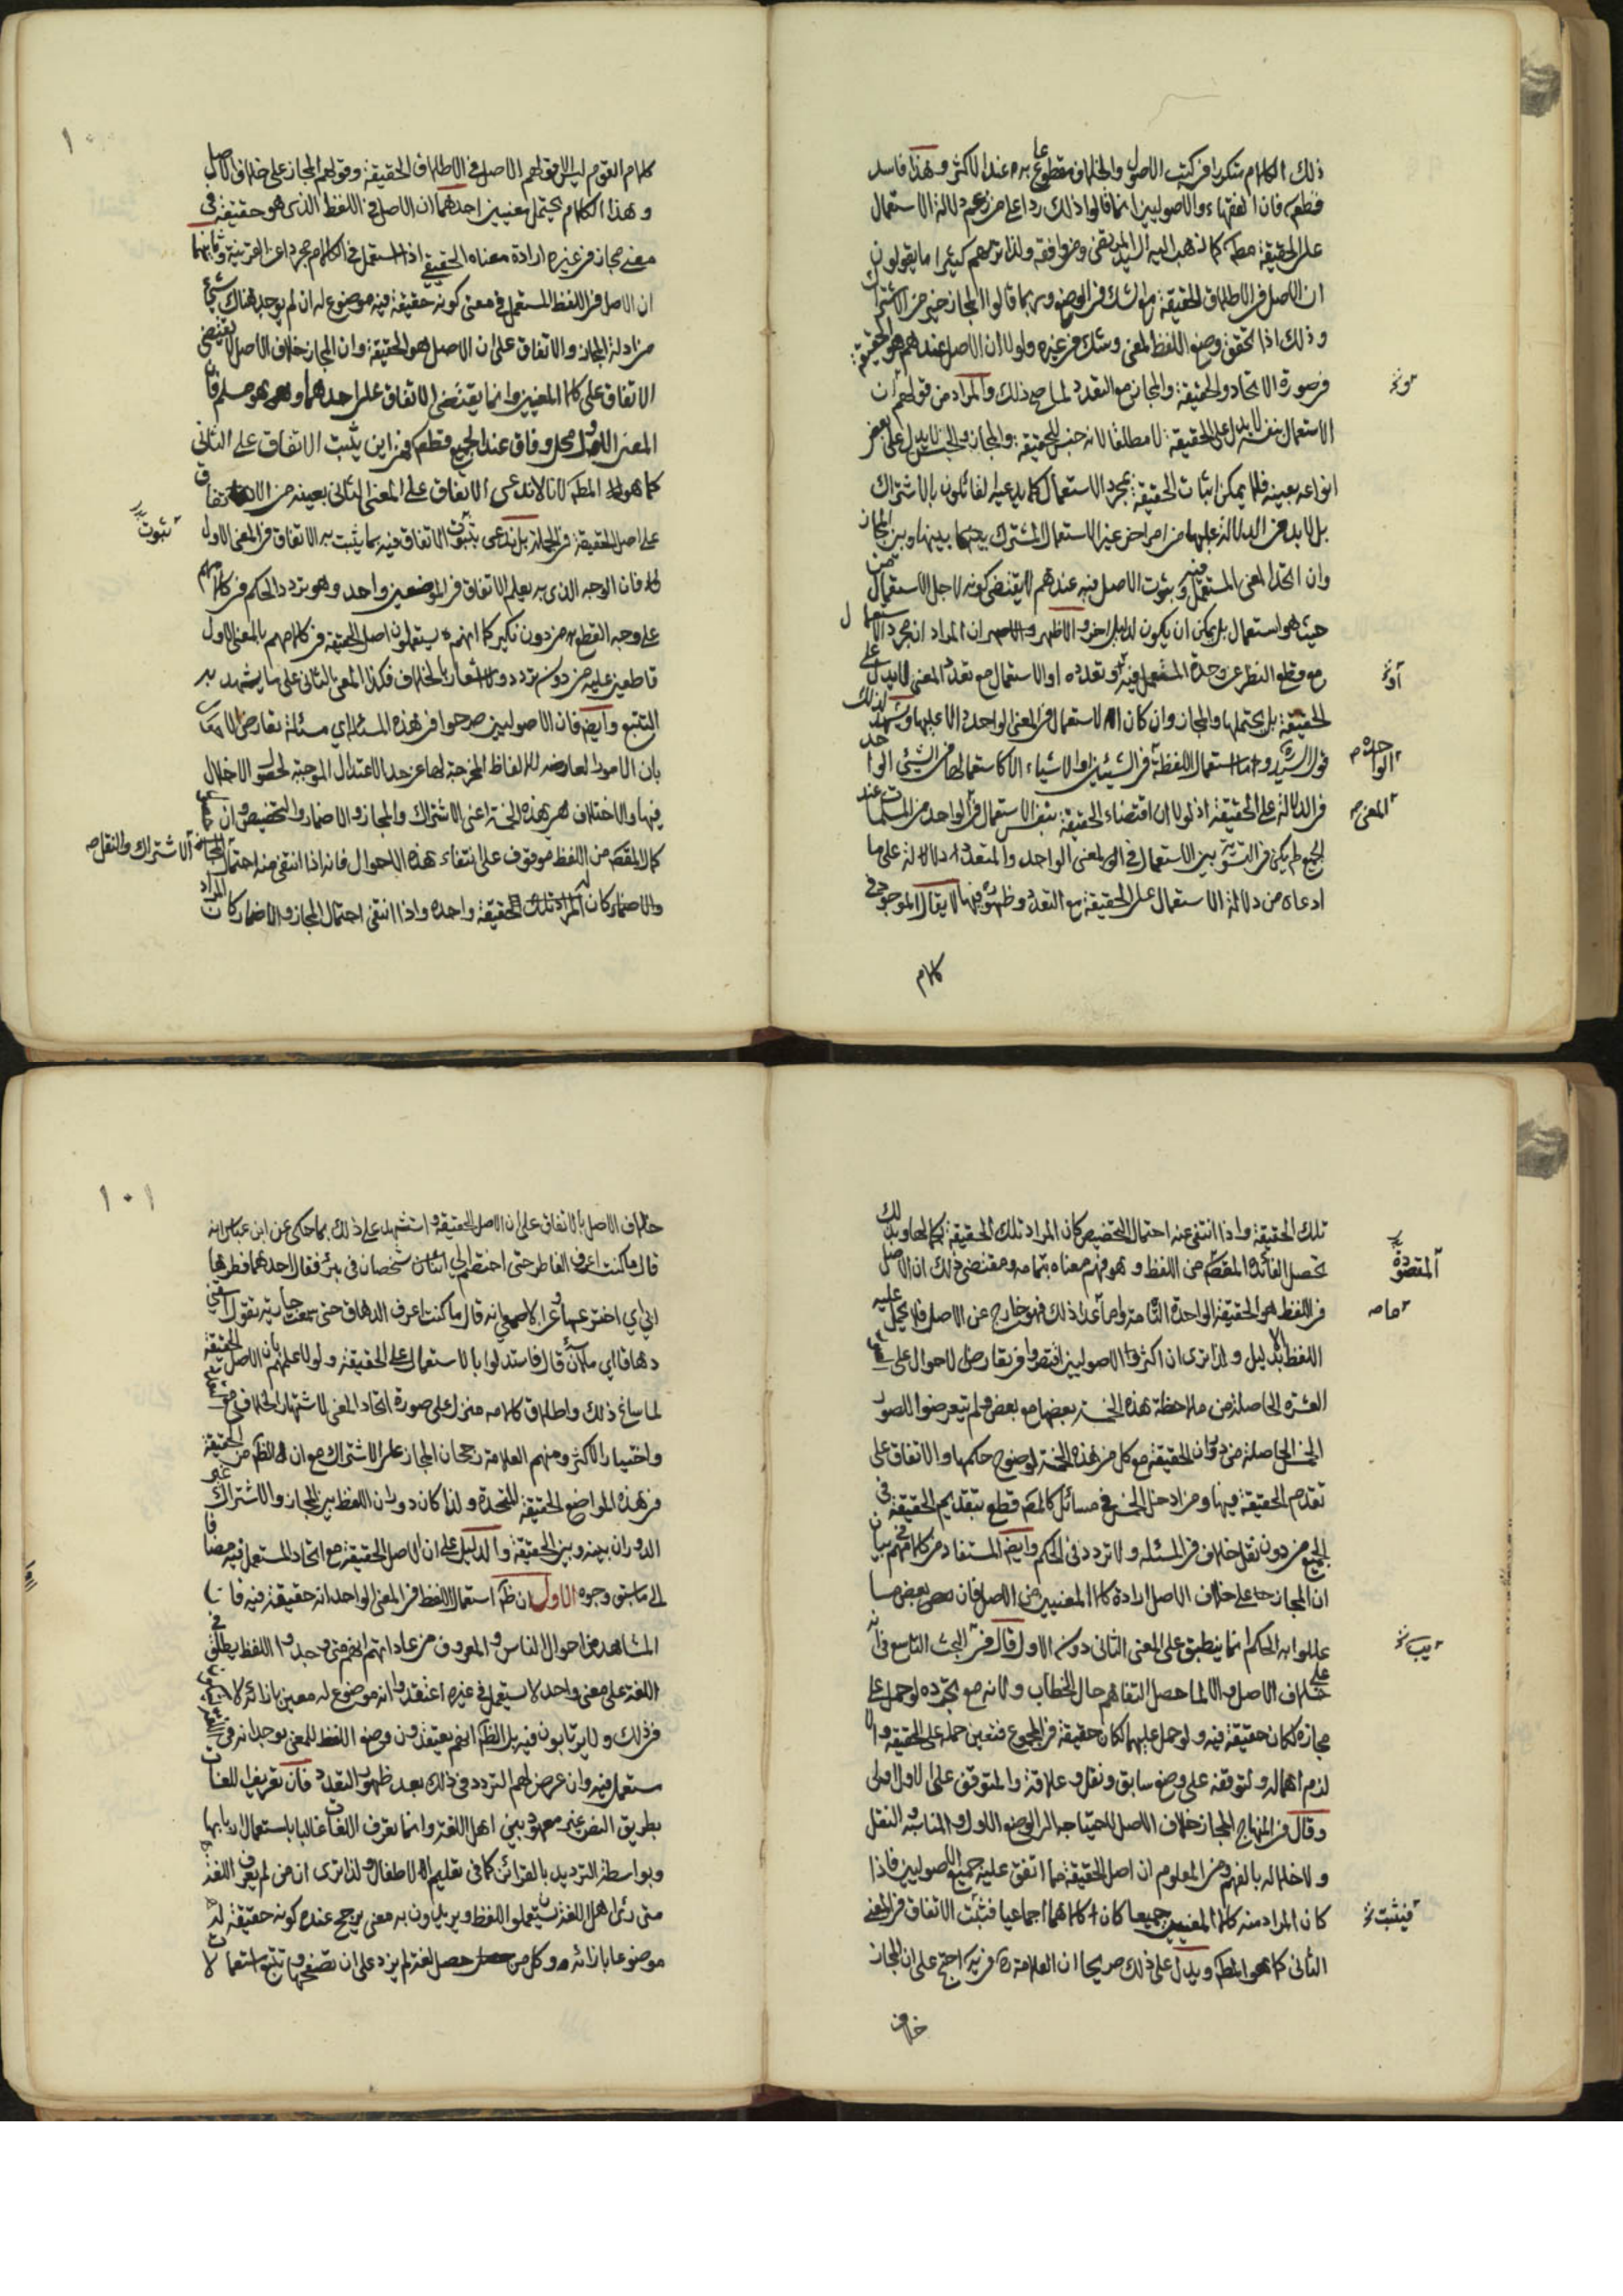 ذلك الكلام متكررا في كتب الاصول والخلاف مقطوع به عند الاكثر وهذا فاسد
قطعا فان الفقهاء والاصوليين انما قالوا ذلك ردا على من زعم دلالة الاستعمال
على الحقيقة مطلقا كما ذهب اليه السيد المرتضى ومن وافقه ولذا تريهم كثيرا ما يقولون
ان الاصل في الاطلاق الحقيقة مع الشك في الوضع وربما قالوا المجاز خير من الاشتراك
وذلك اذا تحقق وضع اللفظ لمعنى وشك في غيره ولولا ان الاصل عندهم هو الحقيقة
في صورة الاتحاد والحقيقة والمجاز مع التعدد لما صح ذلك والمراد من قولهم ان
الاستعمال بنفسه لا يدل على الحقيقة لا مطلقا لانه جنس للحقيقة والمجاز والجنس لا يدل على بعض
انواعه بعينه فلا يمكن اثبات الحقيقة بمجرد الاستعمال كما يدعيه القائلون بالاشتراك
بل لا بد من الدلالة عليها من امر اخر غير الاستعمال المشترك بينها وبين المجاز
وان اتحد المعنى المستعمل فيه وثبوت الاصل فيه عندهم لا يقتضي كونه لاجل الاستعمال من
حيث هو استعمال بل يمكن ان يكون لدليل اخر والاظهر ان المراد ان مجرد الاستعمال
مع قطع النظر عن وحدة المستعمل فيه وتعدده او الاستعمال مع تعدد المعنى لا يدل على
الحقيقة بل يحتملها والمجاز وان كان الاستعمال في المعنى الواحد دالا عليها ويشهد لذلك
قول السيد وما استعمال اللفظة في الشيئين او الاشياء الا كاستعمالها في الشيئ الواحد
في الدلالة على الحقيقة اذ لولا ان اقتضاء الحقيقة بنفس الاستعمال في الواحد من المسلمات عند
الجميع لم يكن في التسوية بين الاستعمال في المعنى الواحد والمتعدد دلالة على ما
ادعاه من دلالة الاستعمال على الحقيقة مع التعدد وظهوره فيها لا يقال الموجود في
كلام
الواحدة
المعنى
١٠٠
كلام القوم ليس الا قولهم الاصل في الاطلاق الحقيقة وقولهم المجاز على خلاف الاصل
وهذا الكلام يحتمل معنيين احدهما ان الاصل في اللفظ الذي هو حقيقة في
معنى مجاز في غيره ارادة معناه الحقيقي اذا استعمل في الكلام مجردا عن القرينة وثانيهما
ان الاصل في اللفظ المستعمل في معنى كونه حقيقة فيه موضوع له ان لم يوجد هناك شيئ
من ادلة المجاز والاتفاق على ان الاصل هو الحقيقة وان المجاز خلاف الاصل لا يقتضي
الاتفاق على كلا المعنيين وانما يقتضي الاتفاق على احدهما وهو مسلم فان
المعنى الاول محل وفاق عند الجميع قطعا فمن اين يثبت الاتفاق على الثاني
كما هو المط لانا لا ندعى الاتفاق على المعنى الثاني بعينه من الاتفاق
على اصل الحقيقة في الجملة بل ندعى ثبوت الاتفاق فيه بما يثبت به الاتفاق في المعنى الاول
فان الوجه الذي به يعلم الاتفاق في الموضعين واحد وهو تردد الحكم في كلامهم
على وجه القطع من دون نكير كما انهم يستعملون اصل الحقيقة في كلامهم بالمعنى الاول
قاطعين عليه من دون تردد واشعار بالخلاف فكذا المعنى الثاني على ما يشهد به
التتبع وايضا فان الاصوليين صرحوا في هذه المسئلة اي مسئلة تعارض الاحوال
بان الامور العارضة للالفاظ المخرجة لها عن حد الاعتدال الموجبة لحصول الاخلال
فيها والاختلاف هي هذه الخمسة اعنى الاشتراك والمجاز والاضمار والتخصيص وان
كمال المقصد من اللفظ موقوف على انتفاء هذه الاحوال فانه اذا انتفى منه احتمال المجاز
والاضمار كان المراد تلك الحقيقة واحدة واذا انتفى احتمال المجاز والاضمار كان المراد
ثبوت
الاشتراك والنقل صح
تلك الحقيقة واذا انتفى عنه احتمال التخصيص كان المراد تلك الحقيقة بكمالها وبذلك
تحصل الفائدة المقصودة من اللفظ وهو فهم معناه بتمامه ومقتضى ذلك ان الاصل
في اللفظ هو الحقيقة الواحدة التامة وما عدا ذلك فهو خارج عن الاصل فلا يحمل عليه
اللفظ الا بدليل ولذا ترى ان اكثر الاصوليين اقتصروا في تعارض الاحوال على
العشرة الحاصلة من ملاحظة هذه الخمسة بعضها مع بعض ولم يتعرضوا للصور
الخمس الحاصلة من دوران الحقيقة مع كل من هذه الخمسة لوضوح حكمها والاتفاق على
تقدم الحقيقة فيها ومن ادخل الخمس في مسائل كالمص قطع بتقديم الحقيقة في
الجميع من دون نقل خلاف في المسئلة ولا تردد في الحكم وايضا المستفاد من كلامهم في بيان
ان المجاز على خلاف الاصل ارادة كلا المعنيين من الاصل فان بعض ما
عللوا به الحكم انما ينطبق على المعنى الثاني دون الاول قال في البحث التاسع في انه
على خلاف الاصل والا لما حصل التفاهم حال الخطاب ولانه مع تجرده لو حمل على
مجازه لكان حقيقة فيه ولو حمل عليهما لكان حقيقة في المجموع فتعين حمله على الحقيقة والا
لزم اهماله ولتوقفه على وضع سابق ونقل وعلاقة والمتوقف على الاول اولى
وقال في المنهاج المجاز خلاف الاصل لاحتياجه الى الوضع الاول والمناسبة والنقل
ولاخلاله بالفهم ومن المعلوم ان اصل الحقيقة مما اتفق عليه جميع الاصوليين فاذا
كان المراد منه كلا المعنيين جميعا كان كلاهما اجماعيا فثبت الاتفاق في المعنى
الثاني كما هو المط ويدل على ذلك صريحا ان العلامة ره في يه احتج على ان المجاز
خلاف
المقصودة
فيثبت
١٠١
خلاف الاصل بالاتفاق على ان الاصل الحقيقة واستشهد على ذلك بما حكى عن ابن عباس انه
قال ما كنت اعرف الفاطر حتى اختصم الي شخصان في بئر فقال احدهما فطرها
ابي اي اخترعها وعن الاصمعي انه قال ما كنت اعرف الدهاق حتى سمعت جارية تقول اسقني
دهاقا اي ملآن قال فاستدلوا بالاستعمال على الحقيقة ولولا علمهم بان الاصل الحقيقة
لما ساغ ذلك واطلاق كلامه منزل على صورة اتحاد المعنى لاشتهار الخلاف في
واختيار الاكثر ومنهم العلامة رجحان المجاز على الاشتراك مع ان الظ من الحقيقة
في هذه المواضع الحقيقة المتحدة ولذا كان دوران اللفظ بين المجاز والاشتراك غير
الدوران بينه وبين الحقيقة والدليل على ان الاصل الحقيقة مع اتحاد المستعمل فيه مضافا
الى ما سبق وجوه الاول ان ظ استعمال اللفظ في المعنى الواحد انه حقيقة فيه فان
المشاهد من احوال الناس والمعروف من عاداتهم انهم متى وجدوا اللفظ يطلق في
اللغة على معنى واحد لا يستعمل في غيره اعتقدوا انه موضوع له معين بازائه لا
في ذلك ولا يرتابون فيه بل الظ انهم يعتقدون وضع اللفظ للمعنى بوجدانه
مستعملا فيه وان عرض لهم التردد في ذلك بعد ظهور التعدد فان تعريف اللغات
بطريق النص غير معهود بين اهل اللغة وانما تعرف اللغات غالبا باستعمال اربابها
وبواسطة الترديد بالقرائن كما في تعليم الاطفال ولذا ترى ان من لم يعرف اللغة
متى رأى اهل اللغة يستعملوا اللفظ ويريدون به معنى يرجح عنده كونه حقيقة له
موضوعا بازائه وكل من حصل لغة لم يزد على ان تصفحها وتتبع استعمالات